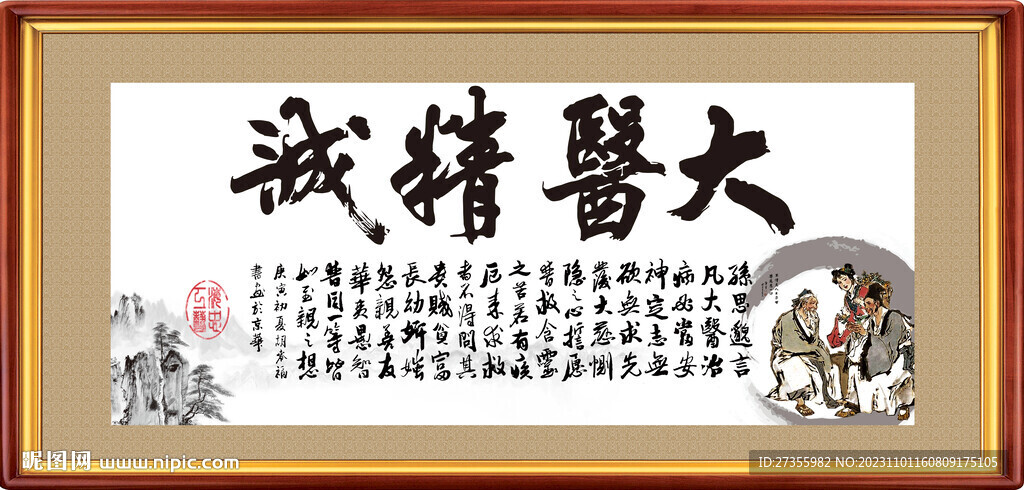 大醫精誠
孫思邈言
凡大醫治
病必當安
神定志無
欲無求先
發大慈惻
隱之心誓愿
普救含靈
之苦若有疾
厄来求救
者不得問其
貴賤貧富
長幼妍媸
怨親善友
華夷愚智
普同一等皆
如至親之想
庚寅初夏胡
書画於京華
昵图网 www.nipic.com
ID:27355982 NO:20231101160809175105